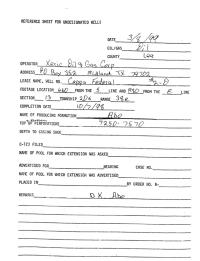 REFERENCE SHEET FOR UNDESIGNATED WELLS
DATE 3/9/99
OIL/GAS Oil
COUNTY Lea
OPERATOR Xeric Oil & Gas Corp
ADDRESS PO Box 352 Midland TX 79702
LEASE NAME, WELL NO. Capps Federal #2-D
FOOTAGE LOCATION 660 FROM THE S LINE AND FROM THE E LINE
SECTION 13 TOWNSHIP 20s RANGE 38e
COMPLETION DATE 10/7/98
NAME OF PRODUCING FORMATION Abo
TOP OF PERFORATIONS 7250-7570
DEPTH TO CASING SHOE
C-123 FILED
NAME OF POOL FOR WHICH EXTENSION WAS ASKED
ADVERTISED FOR HEARING CASE NO.
NAME OF POOL FOR WHICH EXTENSION WAS ADVERTISED
PLACED IN BY ORDER NO. R-
REMARKS DK Abo